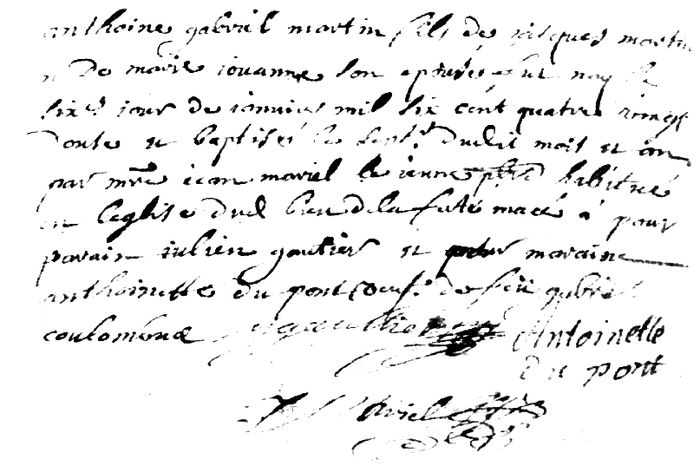 anthoine gabriel martin fils de jacques martin
et de marie iouanne son epouse fut nay le
sixe iour de ianvier mil six cent quatre vingt
doute et baptisé le sept.e dudit mois et an
par mre iean mariel le ieune pbre habitué
en leglise dud lieu de la futé macé a pour
parain iulien gautier et pour maraine
anthoinette du pont coeuf. de feu gabriel
coulombue
Antoinette
du pont